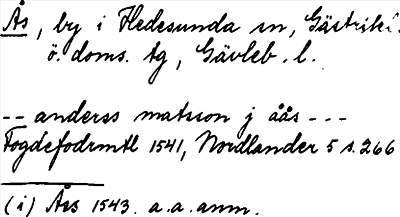 Ås, by i Hedesunda sn, Gästrikl.
ö. doms. tg, Gävleb. l.
-- anderss matsson j åås ---
Fogdefodrmtl 1541, Nordlander 5 s. 266
(i) Års 1543. a.a. anm.